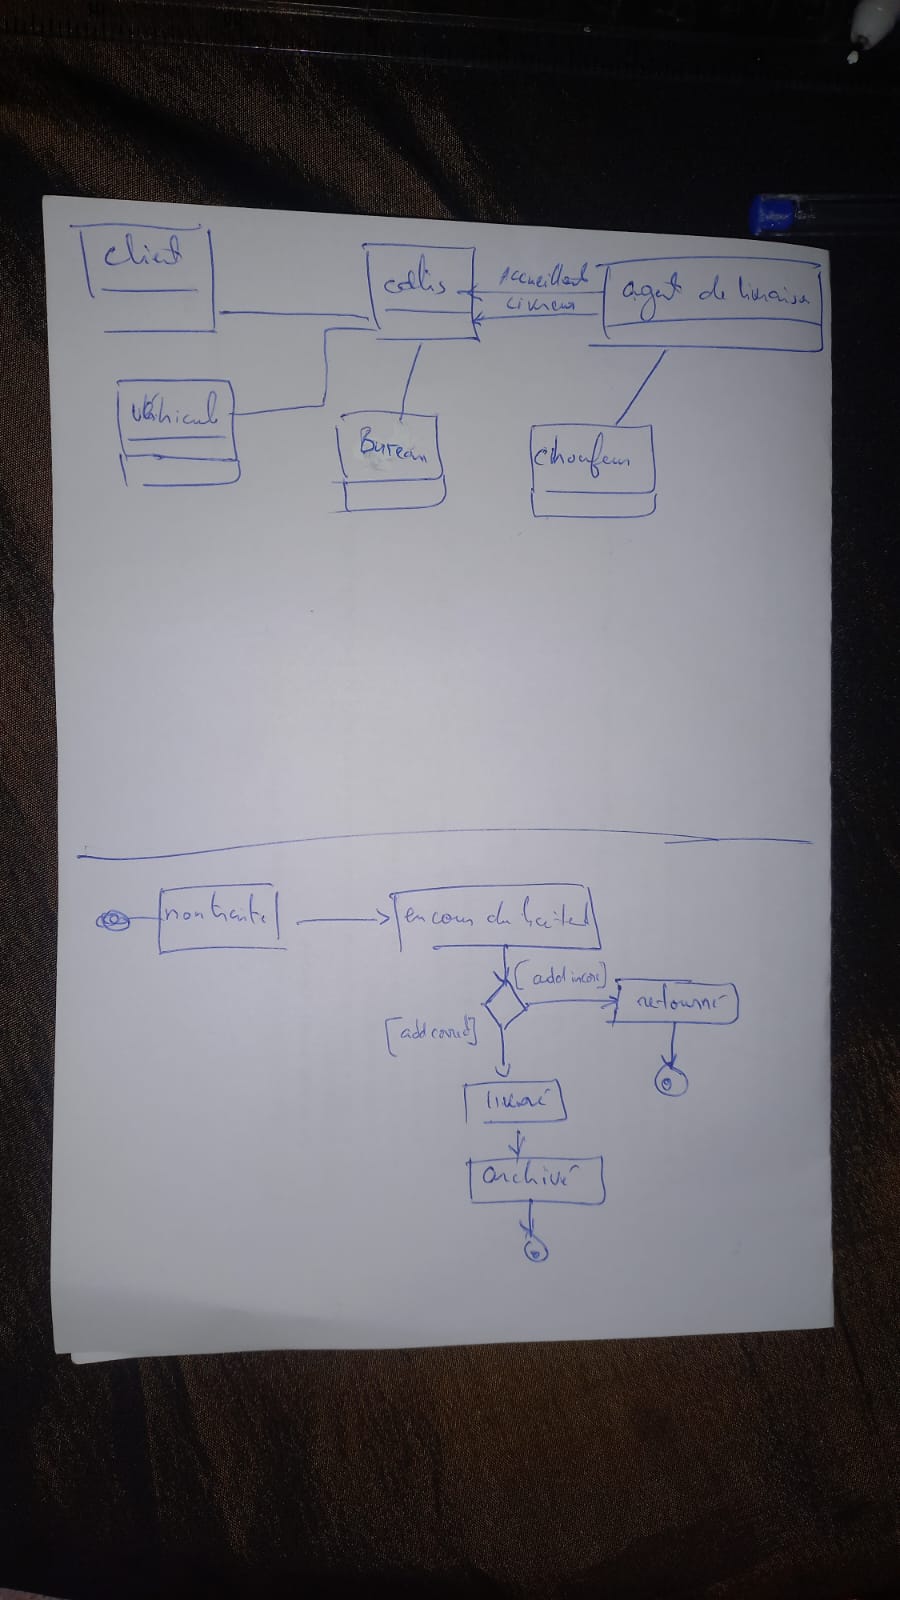 client
collis
accueillant
livreur
agent de livraison
véhicule
Bureau
choufeur
non traité
en cour du traited
[add incor]
retourné
[add correct]
livré
archivé